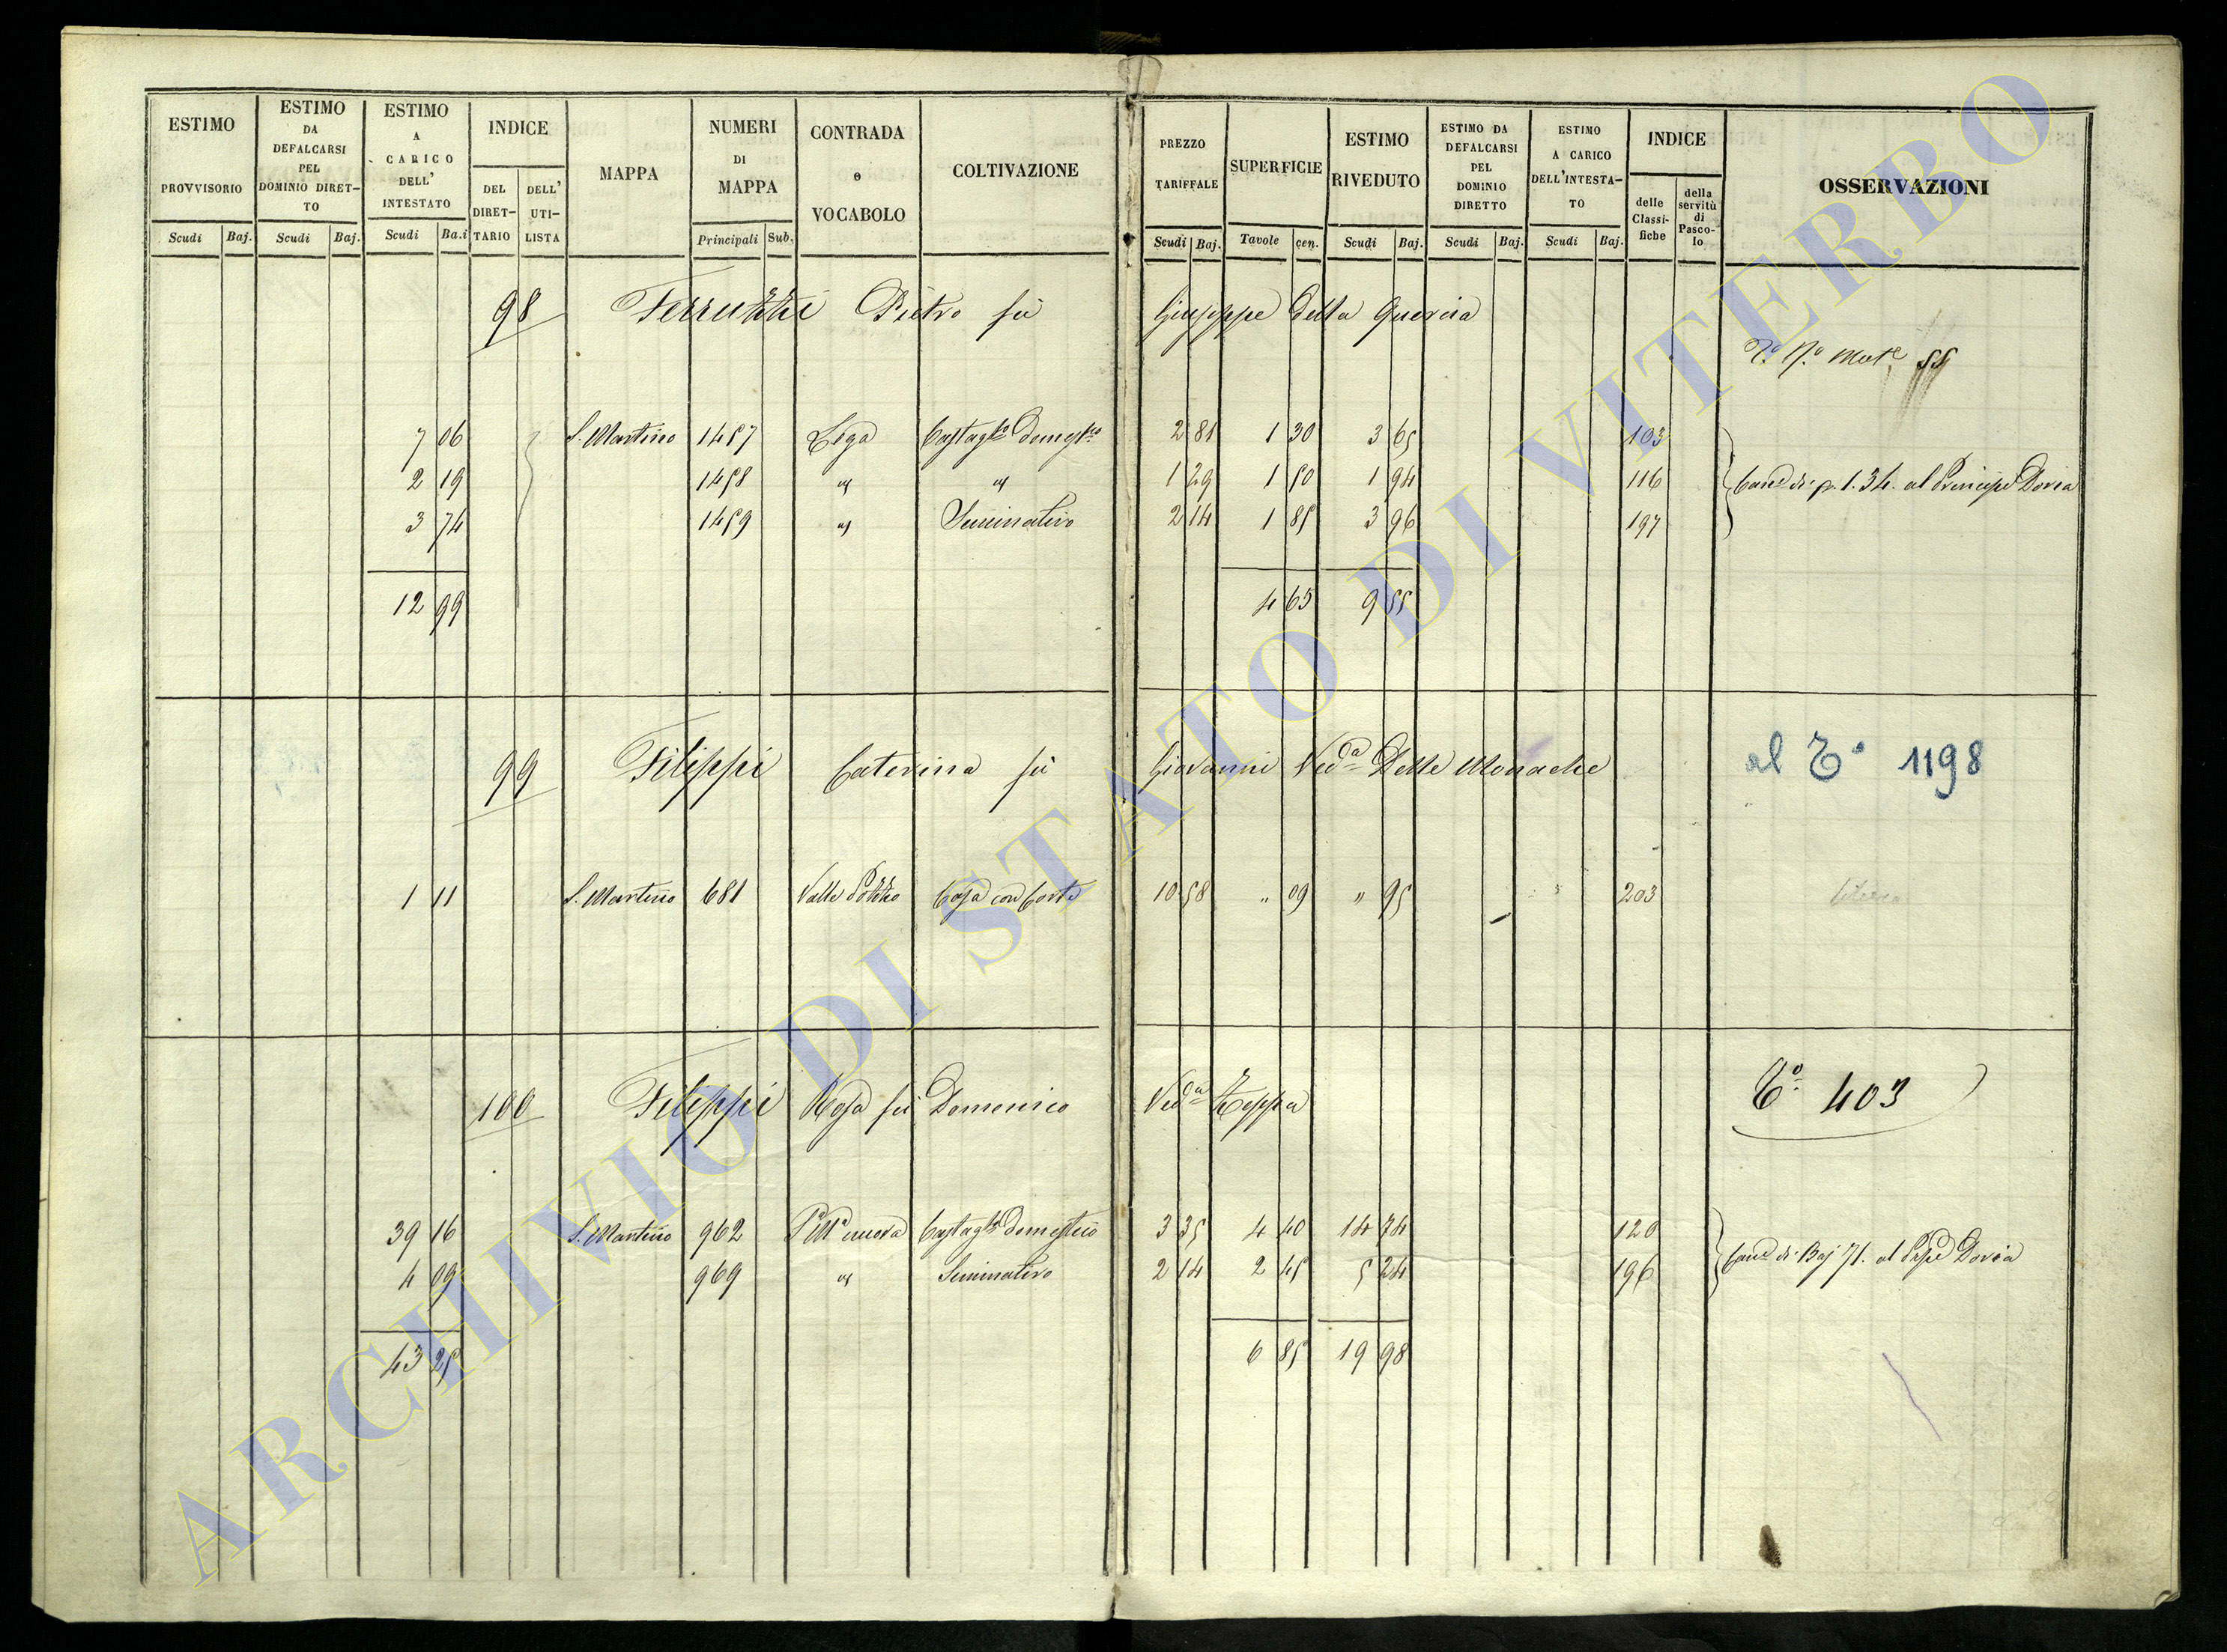 ESTIMO PROVVISORIO Scudi Baj.
ESTIMO DA DEFALCARSI PEL DOMINIO DIRET-TO Scudi Baj.
ESTIMO A CARICO DELL' INTESTATO Scudi Ba.i
INDICE DEL DIRET-TARIO DELL' UTI-LISTA
MAPPA
NUMERI DI MAPPA Principali Sub.
CONTRADA o VOCABOLO
COLTIVAZIONE
PREZZO TARIFFALE Scudi Baj.
SUPERFICIE Tavole cen.
ESTIMO RIVEDUTO Scudi Baj.
ESTIMO DA DEFALCARSI PEL DOMINIO DIRETTO Scudi Baj.
ESTIMO A CARICO DELL'INTESTA-TO Scudi Baj.
INDICE delle Classi-fiche della servitù di Pasco-lo
OSSERVAZIONI
98 Ferruzzi Pietro fù Giuseppe Della Quercia
55
7 06 S. Martino 1457 Lega Castag.to domes.co 2 81 1 30 3 65 103
2 19 1458 " " 1 29 1 50 1 94 116 al Principe Doria
3 74 1459 " Seminativo 2 14 1 85 3 96 197
12 99 4 65 9 55
99 Filippi Caterina fù Giovanni Ved.a Delle Monache al T.o 1198
1 11 S. Martino 681 Valle Pozzo Casa con Corte 10 58 " 09 " 95 203
100 Filippi Rosa fù Domenico Ved.a Zoppa T.o 403
39 16 S. Martino 962 nuova Castag.to domestico 3 35 4 40 14 74 120
4 09 969 " Seminativo 2 14 2 45 5 24 196 di Baj 71. al Doria
43 25 6 85 19 98
ARCHIVIO DI STATO DI VITERBO